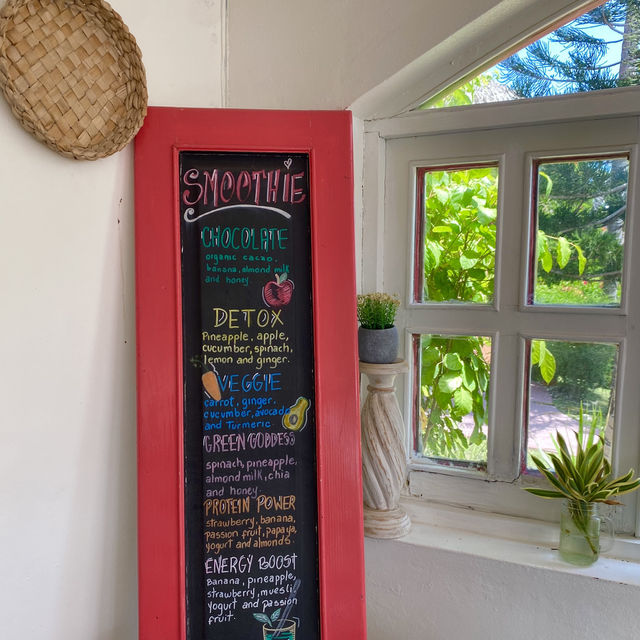 SMOOTHIE
CHOCOLATE
organic cacao,
banana, almond milk
and honey.
DETOX
Pineapple, apple,
cucumber, spinach,
lemon and ginger.
VEGGIE
carrot, ginger,
cucumber, avocado
and Turmeric.
GREEN GODDESS
spinach, pineapple,
almond milk, chia
and honey.
PROTEIN POWER
strawberry, banana,
passion fruit, papaya,
yogurt and almonds.
ENERGY BOOST
Banana, pineapple,
strawberry, muesli
Yogurt and passion
fruit.